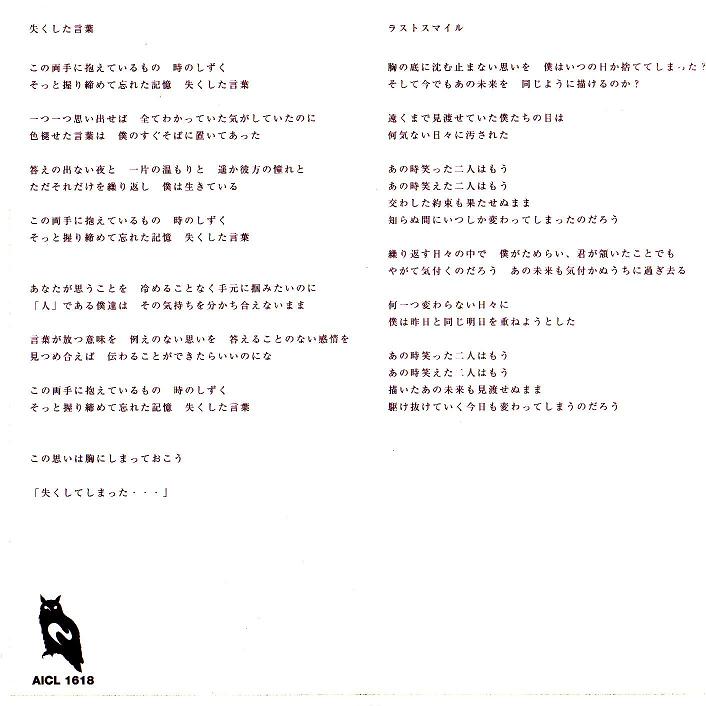 失くした言葉
この両手に抱えているもの　時のしずく
そっと握り締めて忘れた記憶　失くした言葉
一つ一つ思い出せば　全てわかっていた気がしていたのに
色褪せた言葉は　僕のすぐそばに置いてあった
答えの出ない夜と　一片の温もりと　遥か彼方の憧れと
ただそれだけを繰り返し　僕は生きている
この両手に抱えているもの　時のしずく
そっと握り締めて忘れた記憶　失くした言葉
あなたが思うことを　冷めることなく手元に掴みたいのに
「人」である僕達は　その気持ちを分かち合えないまま
言葉が放つ意味を　例えのない思いを　答えることのない感情を
見つめ合えば　伝わることができたらいいのにな
この両手に抱えているもの　時のしずく
そっと握り締めて忘れた記憶　失くした言葉
この思いは胸にしまっておこう
「失くしてしまった・・・」
ラストスマイル
胸の底に沈む止まない思いを　僕はいつの日か捨ててしまった？
そして今でもあの未来を　同じように描けるのか？
遠くまで見渡せていた僕たちの目は
何気ない日々に汚された
あの時笑った二人はもう
あの時笑えた二人はもう
交わした約束も果たせぬまま
知らぬ間にいつしか変わってしまったのだろう
繰り返す日々の中で　僕がためらい、君が頷いたことでも
やがて気付くのだろう　あの未来も気付かぬうちに過ぎ去る
何一つ変わらない日々に
僕は昨日と同じ明日を重ねようとした
あの時笑った二人はもう
あの時笑えた二人はもう
描いたあの未来も見渡せぬまま
駆け抜けていく今日も変わってしまうのだろう
AICL 1618